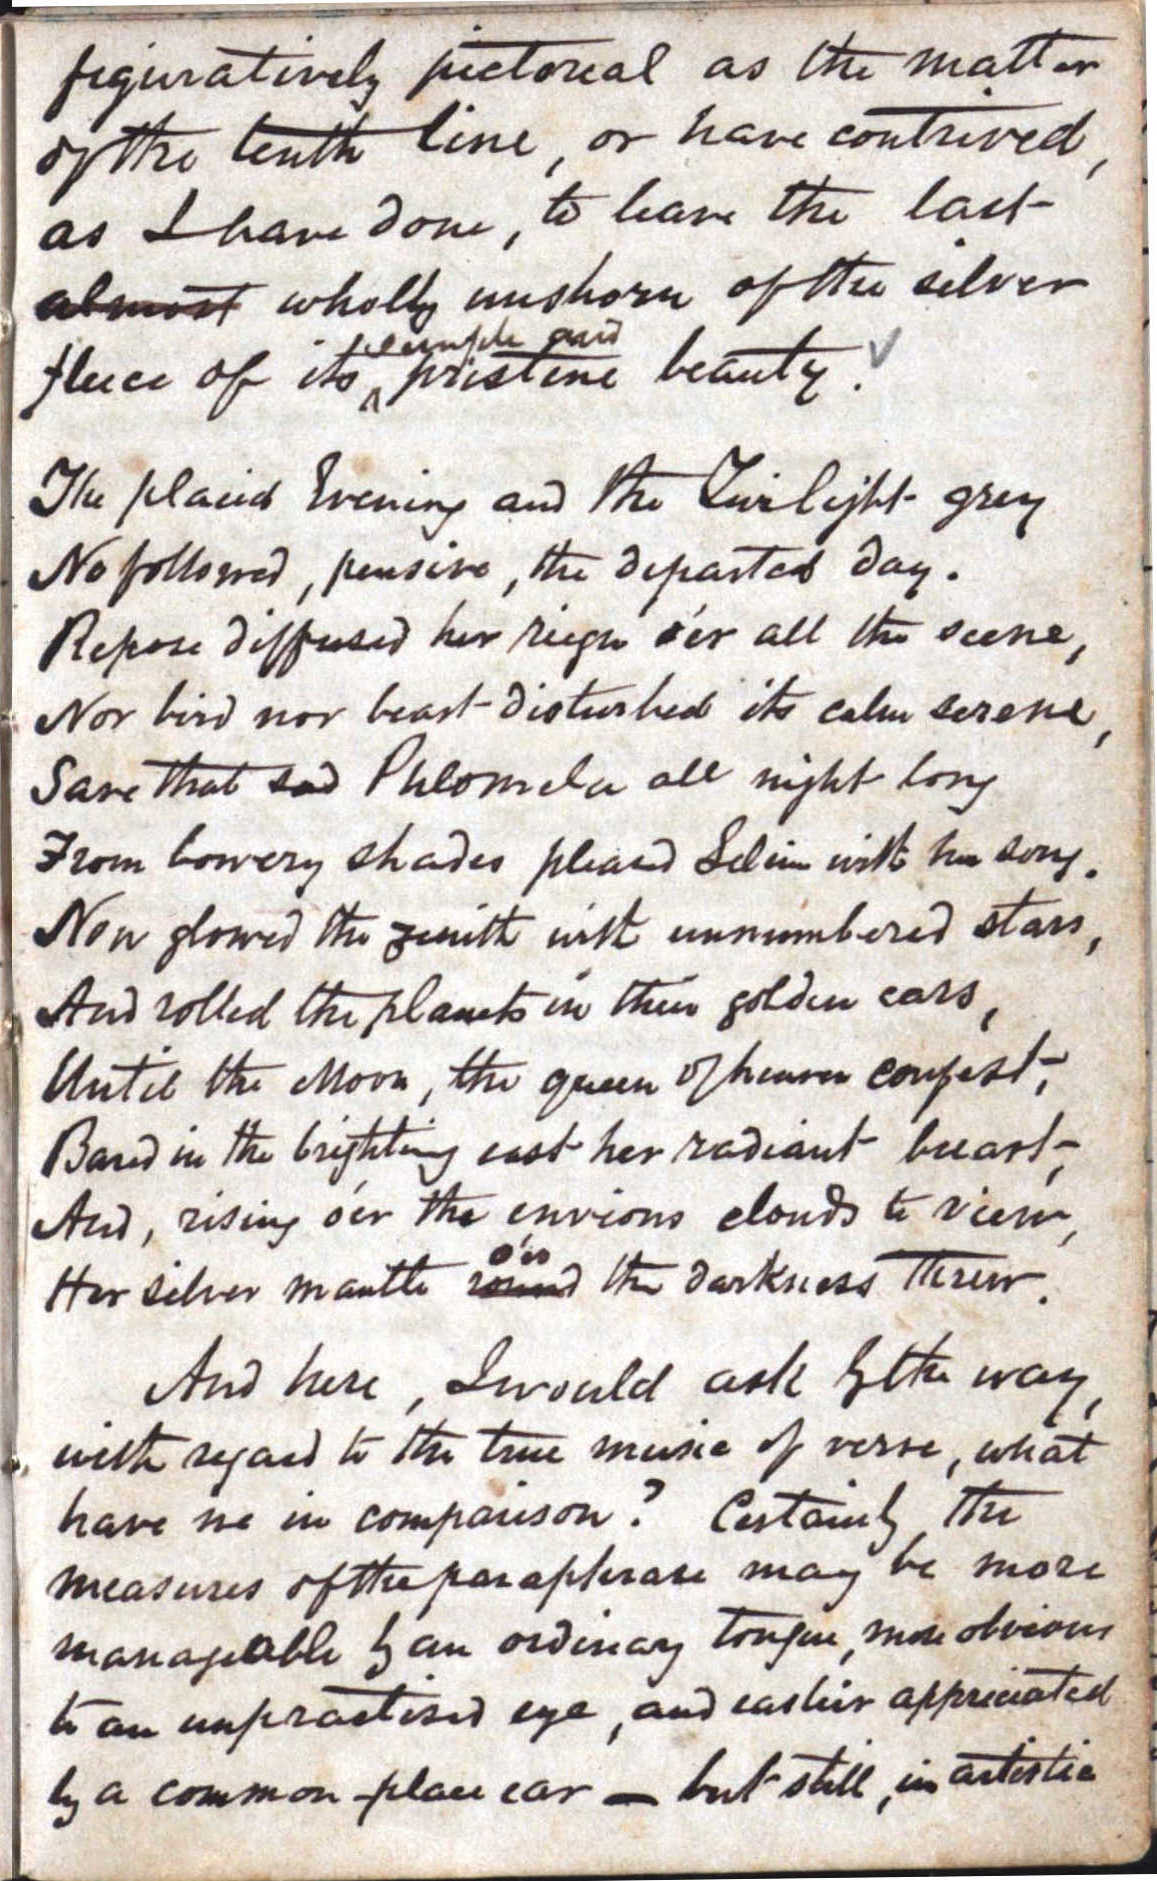 figuratively pictoreal as the matter
of the tenth line, or have contrived,
as I have done, to leave the last
almost wholly unshorn of the silver
fleece of its simple and pristine beauty.
The placid Evening and the Twilight grey
No followed, pensive, the departed day.
Repose diffused her riegn o'er all the scene,
Nor bird nor beast disturbed its calm serene,
Save that sad Philomela all night long
From bowery shades pleased Selim with her song.
Now glowed the zenith with unnumbered stars,
And rolled the planets in their golden cars,
Until the Moon, the queen of heaven confest,
Bared in the brighting east her radiant breast,
And, rising o'er the envious clouds to view,
Her silver mantle round o'er the darkness threw.
And here, I would ask by the way,
with regard to the true music of verse, what
have we in comparison? Certainly the
measures of the paraphrase may be more
manageable by an ordinary tongue, more obvious
to an unpractised eye, and easlier appreciated
by a common-place ear — but still, in artistic